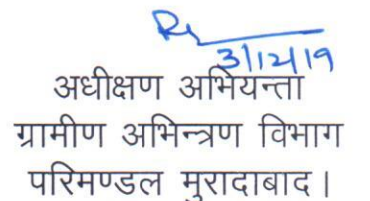 3/12/19
अधीक्षण अभियन्ता
ग्रामीण अभिन्त्रण विभाग
परिमण्डल मुरादाबाद।